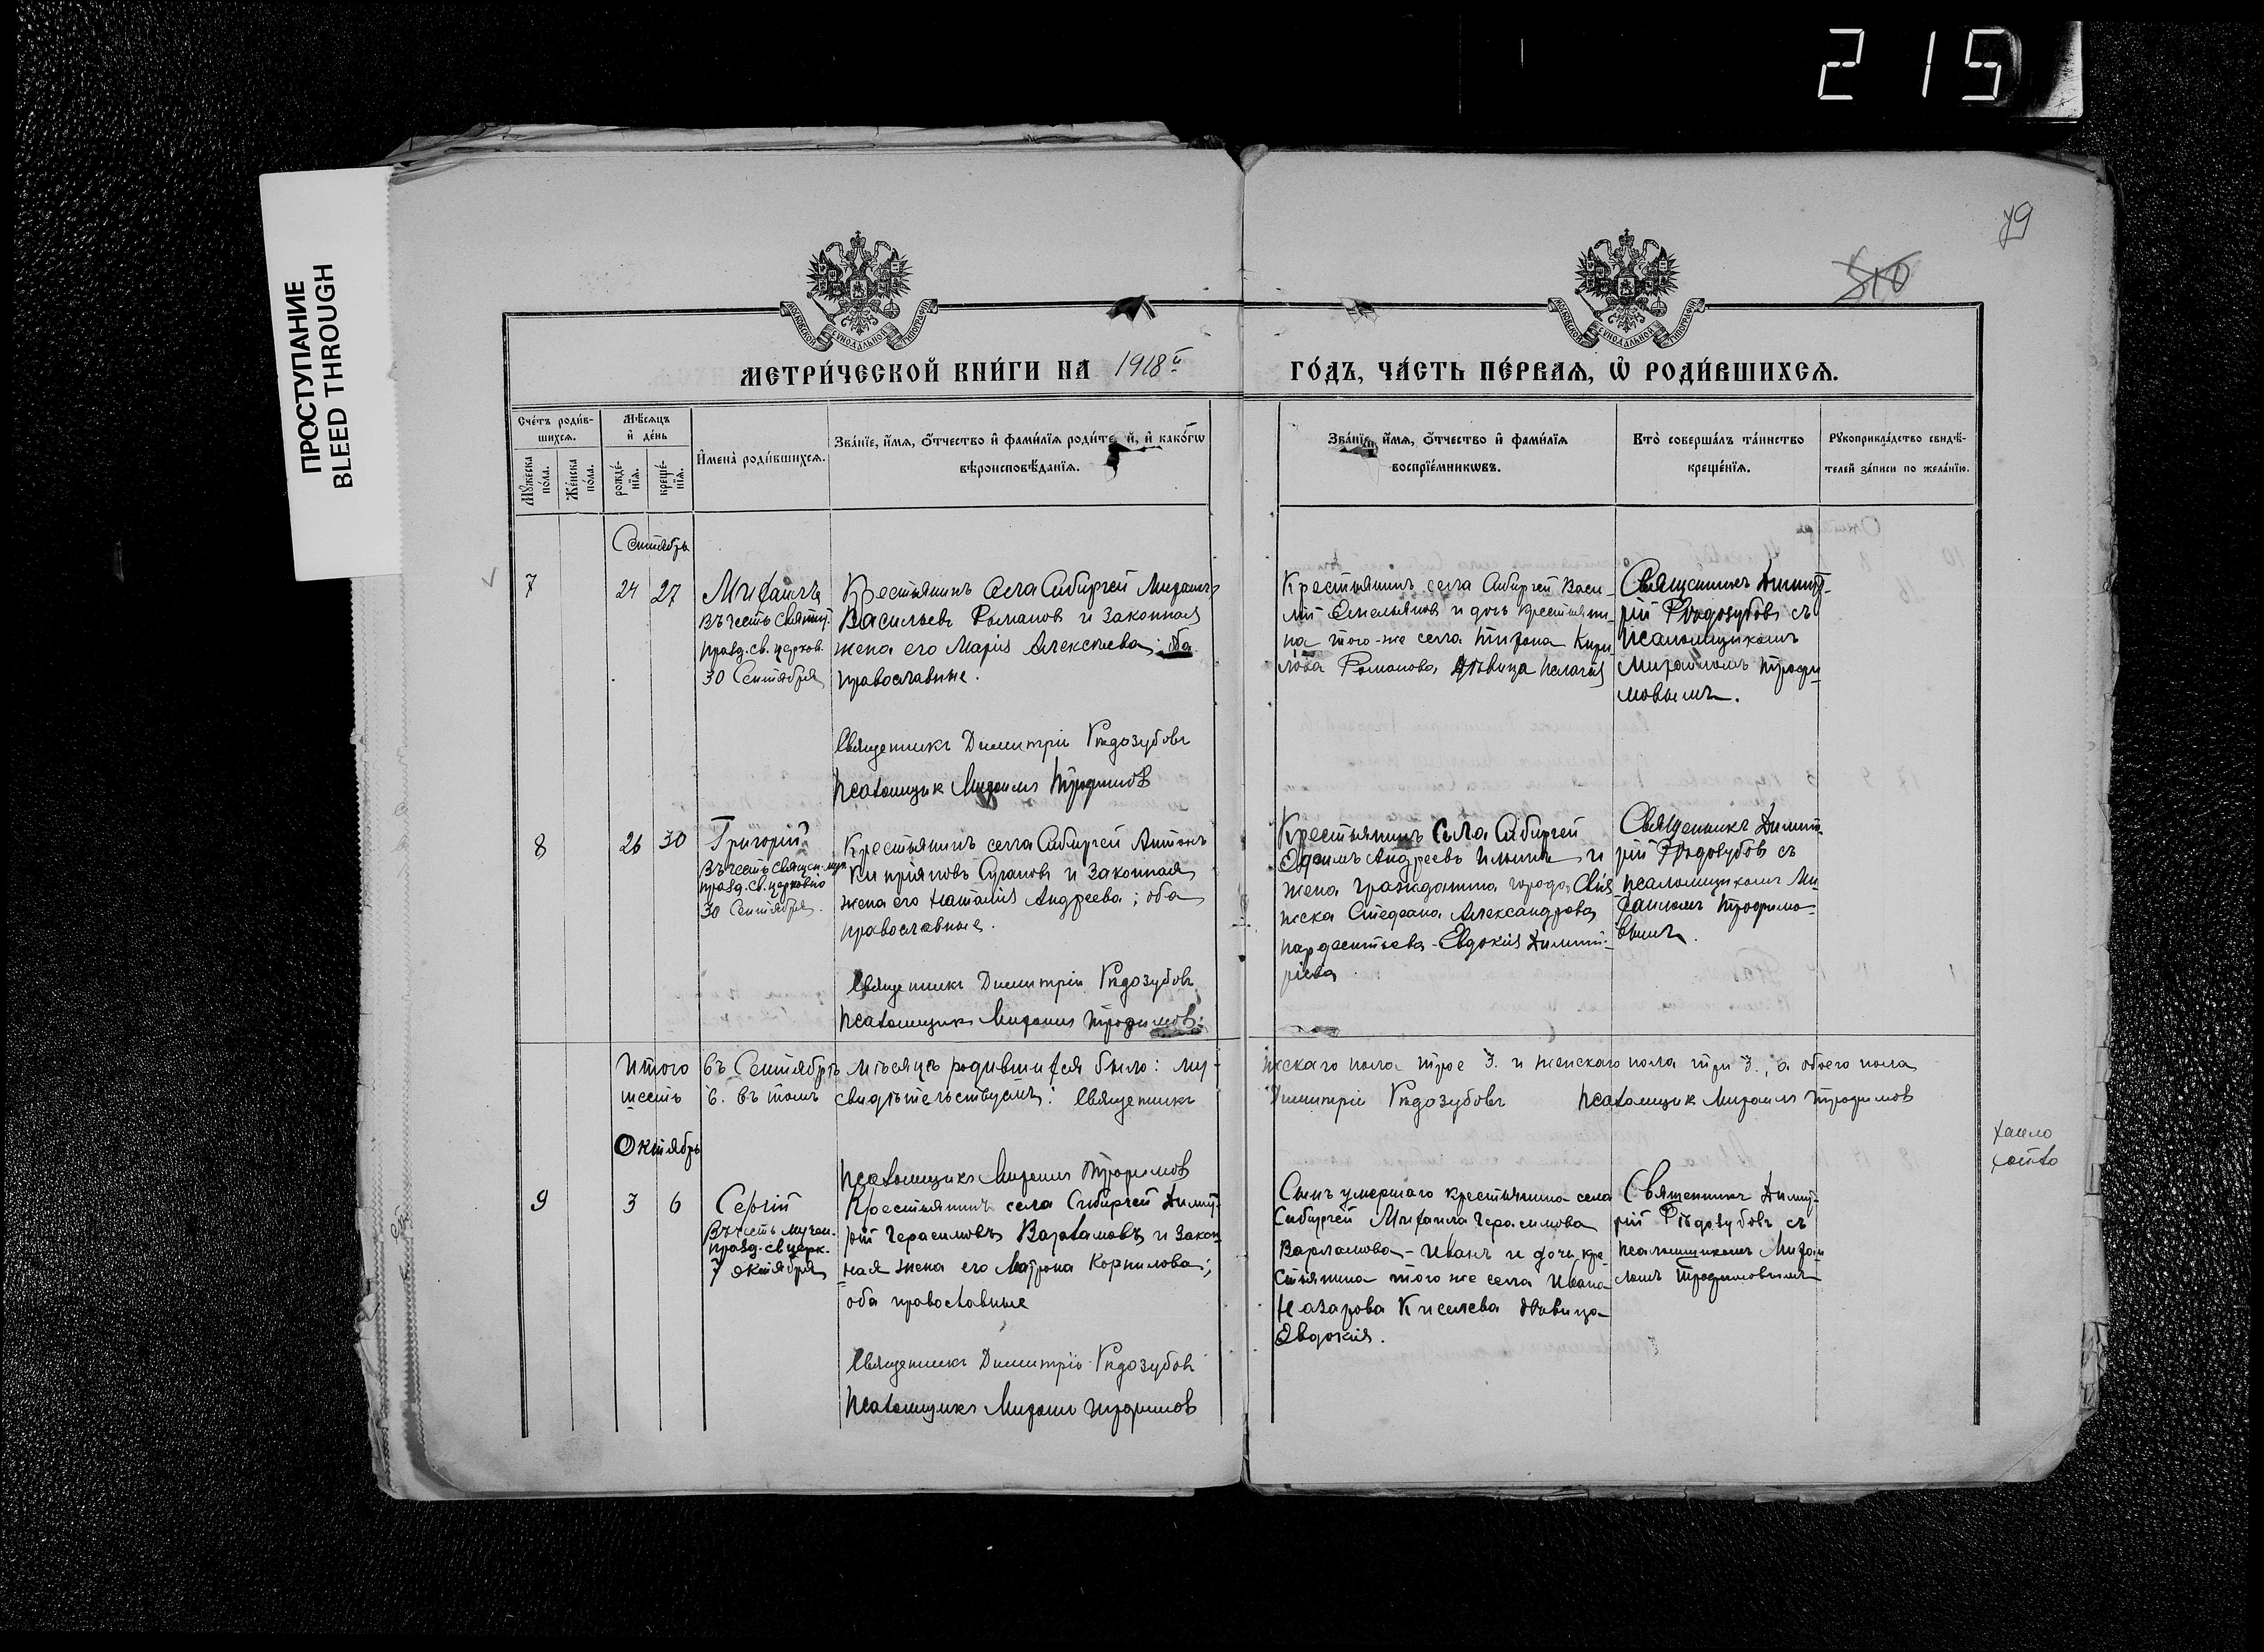 215
79
510
ПРОСТУПАНИЕ
BLEED THROUGH
МОСКОВСКОЙ СѴНОДАЛЬНОЙ ТИПОГРАФІИ
МОСКОВСКОЙ СѴНОДАЛЬНОЙ ТИПОГРАФІИ
МЕТРИ́ЧЕСКОЙ КНИ́ГИ НА 1918й ГО́ДЪ, ЧА́СТЬ ПЕ́РВАѦ, Ѡ҆ РОДИ́ВШИХСѦ.
Сче́тъ роди́в-
шихсѧ.
Мꙋ́жеска по́ла.
Же́нска по́ла.
Мѣ́сѧцъ
и҆ де́нь
рожде́-
нїѧ.
креще́-
нїѧ.
И҆мена̀ роди́вшихсѧ.
Зва́нїе, и҆́мѧ, ѻ҆́тчество и҆ фами́лїѧ роди́те й, и҆ како́гѡ
вѣроисповѣ́данїѧ.
Зва́нїе, и҆́мѧ, ѻ҆́тчество и҆ фами́лїѧ
воспрїе́мникѡвъ.
Кто̀ соверша́лъ та́инство
креще́нїѧ.
Рꙋкоприкла́дство свидѣ́-
телей за́писи по жела́нїю.
Сентябрь
7 24 27
Михаилъ
Въ честь святит.
празд. св. церков.
30 Сентября
Крестьянинъ села Сибиргей Михаилъ
Васильевъ Романовъ и законная
жена его Марія Алексѣева; оба
православные.
Священникъ Димитрій Рѣдозубовъ
Псаломщикъ Михаилъ Трофимовъ
Крестьянинъ села Сибиргей Васи-
лій Емельяновъ и дочь крестьяни-
на того-же села Кири-
лова Романова, дѣвица Пелагія
Священникъ Димит-
рій Рѣдозубовъ съ
псаломщикомъ
Михаиломъ Трофи-
мовымъ.
8 26 30
Григорій
Въ честь священ.-муч.
празд. св. церковію
30 Сентября.
Крестьянинъ села Сибиргей Антонъ
Кипріяновъ и законная
жена его Наталія Андреева; оба
православные.
Священникъ Димитрій Рѣдозубовъ
Псаломщикъ Михаилъ Трофимовъ
Крестьянинъ села Сибиргей
Ефимъ Андреевъ Ильинъ и
жена гражданина города Свія-
жска Стефана Александрова
Евдокія Димит-
ріева
Священникъ Димит-
рій Рѣдозубовъ съ
псаломщикомъ Ми-
хаиломъ Трофимо-
вымъ.
Итого въ Сентябрѣ мѣсяцѣ родившихся было: му- жскаго пола трое 3. и женскаго пола три 3., а обоего пола
шесть 6. въ томъ свидѣтельствуемъ: Священникъ Димитрій Рѣдозубовъ Псаломщикъ Михаилъ Трофимовъ
Октябрь
Псаломщикъ Михаилъ Трофимовъ
9 3 6
Сергій
Въ честь мучен.
празд. св церк.
7 октября
Крестьянинъ села Сибиргей Димит-
рій Герасимовъ Варламовъ и закон-
ная жена его Матрона Корнилова;
оба православные
Священникъ Димитрій Рѣдозубовъ
Псаломщикъ Михаилъ Трофимовъ
Сынъ умершаго крестьянина села
Сибиргей Михаила Герасимова
Варламова - Иванъ и дочь кре-
стьянина того же села Ивана
Назарова Киселева дѣвица
Евдокія.
Священникъ Димит-
рій Рѣдозубовъ съ
псаломщикомъ Михаи-
ломъ Трофимовымъ